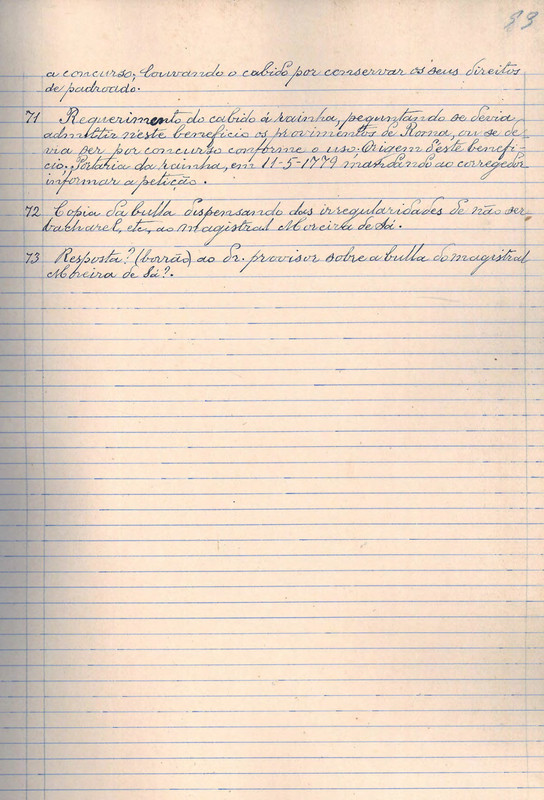 83
a concurso; louvando o cabido por conservar os seus direitos
de padroado.
71 Requerimento do cabido á rainha, peguntando se devia
admittir neste beneficio os provimentos de Roma, ou se de-
via ser por concurso conforme o uso. Origem d'este benefi-
cio; Portaria da rainha, em 11-5-1779 mandando ao corregedor
informar a petição.
72 Copia da bulla dispensando das irregularidades de não ser
bacharel, etc, ao magistral Moreira de Sá.
73 Resposta? (borrão) ao Dr. provisor sobre a bulla do magistral
Moreira de Sá?.